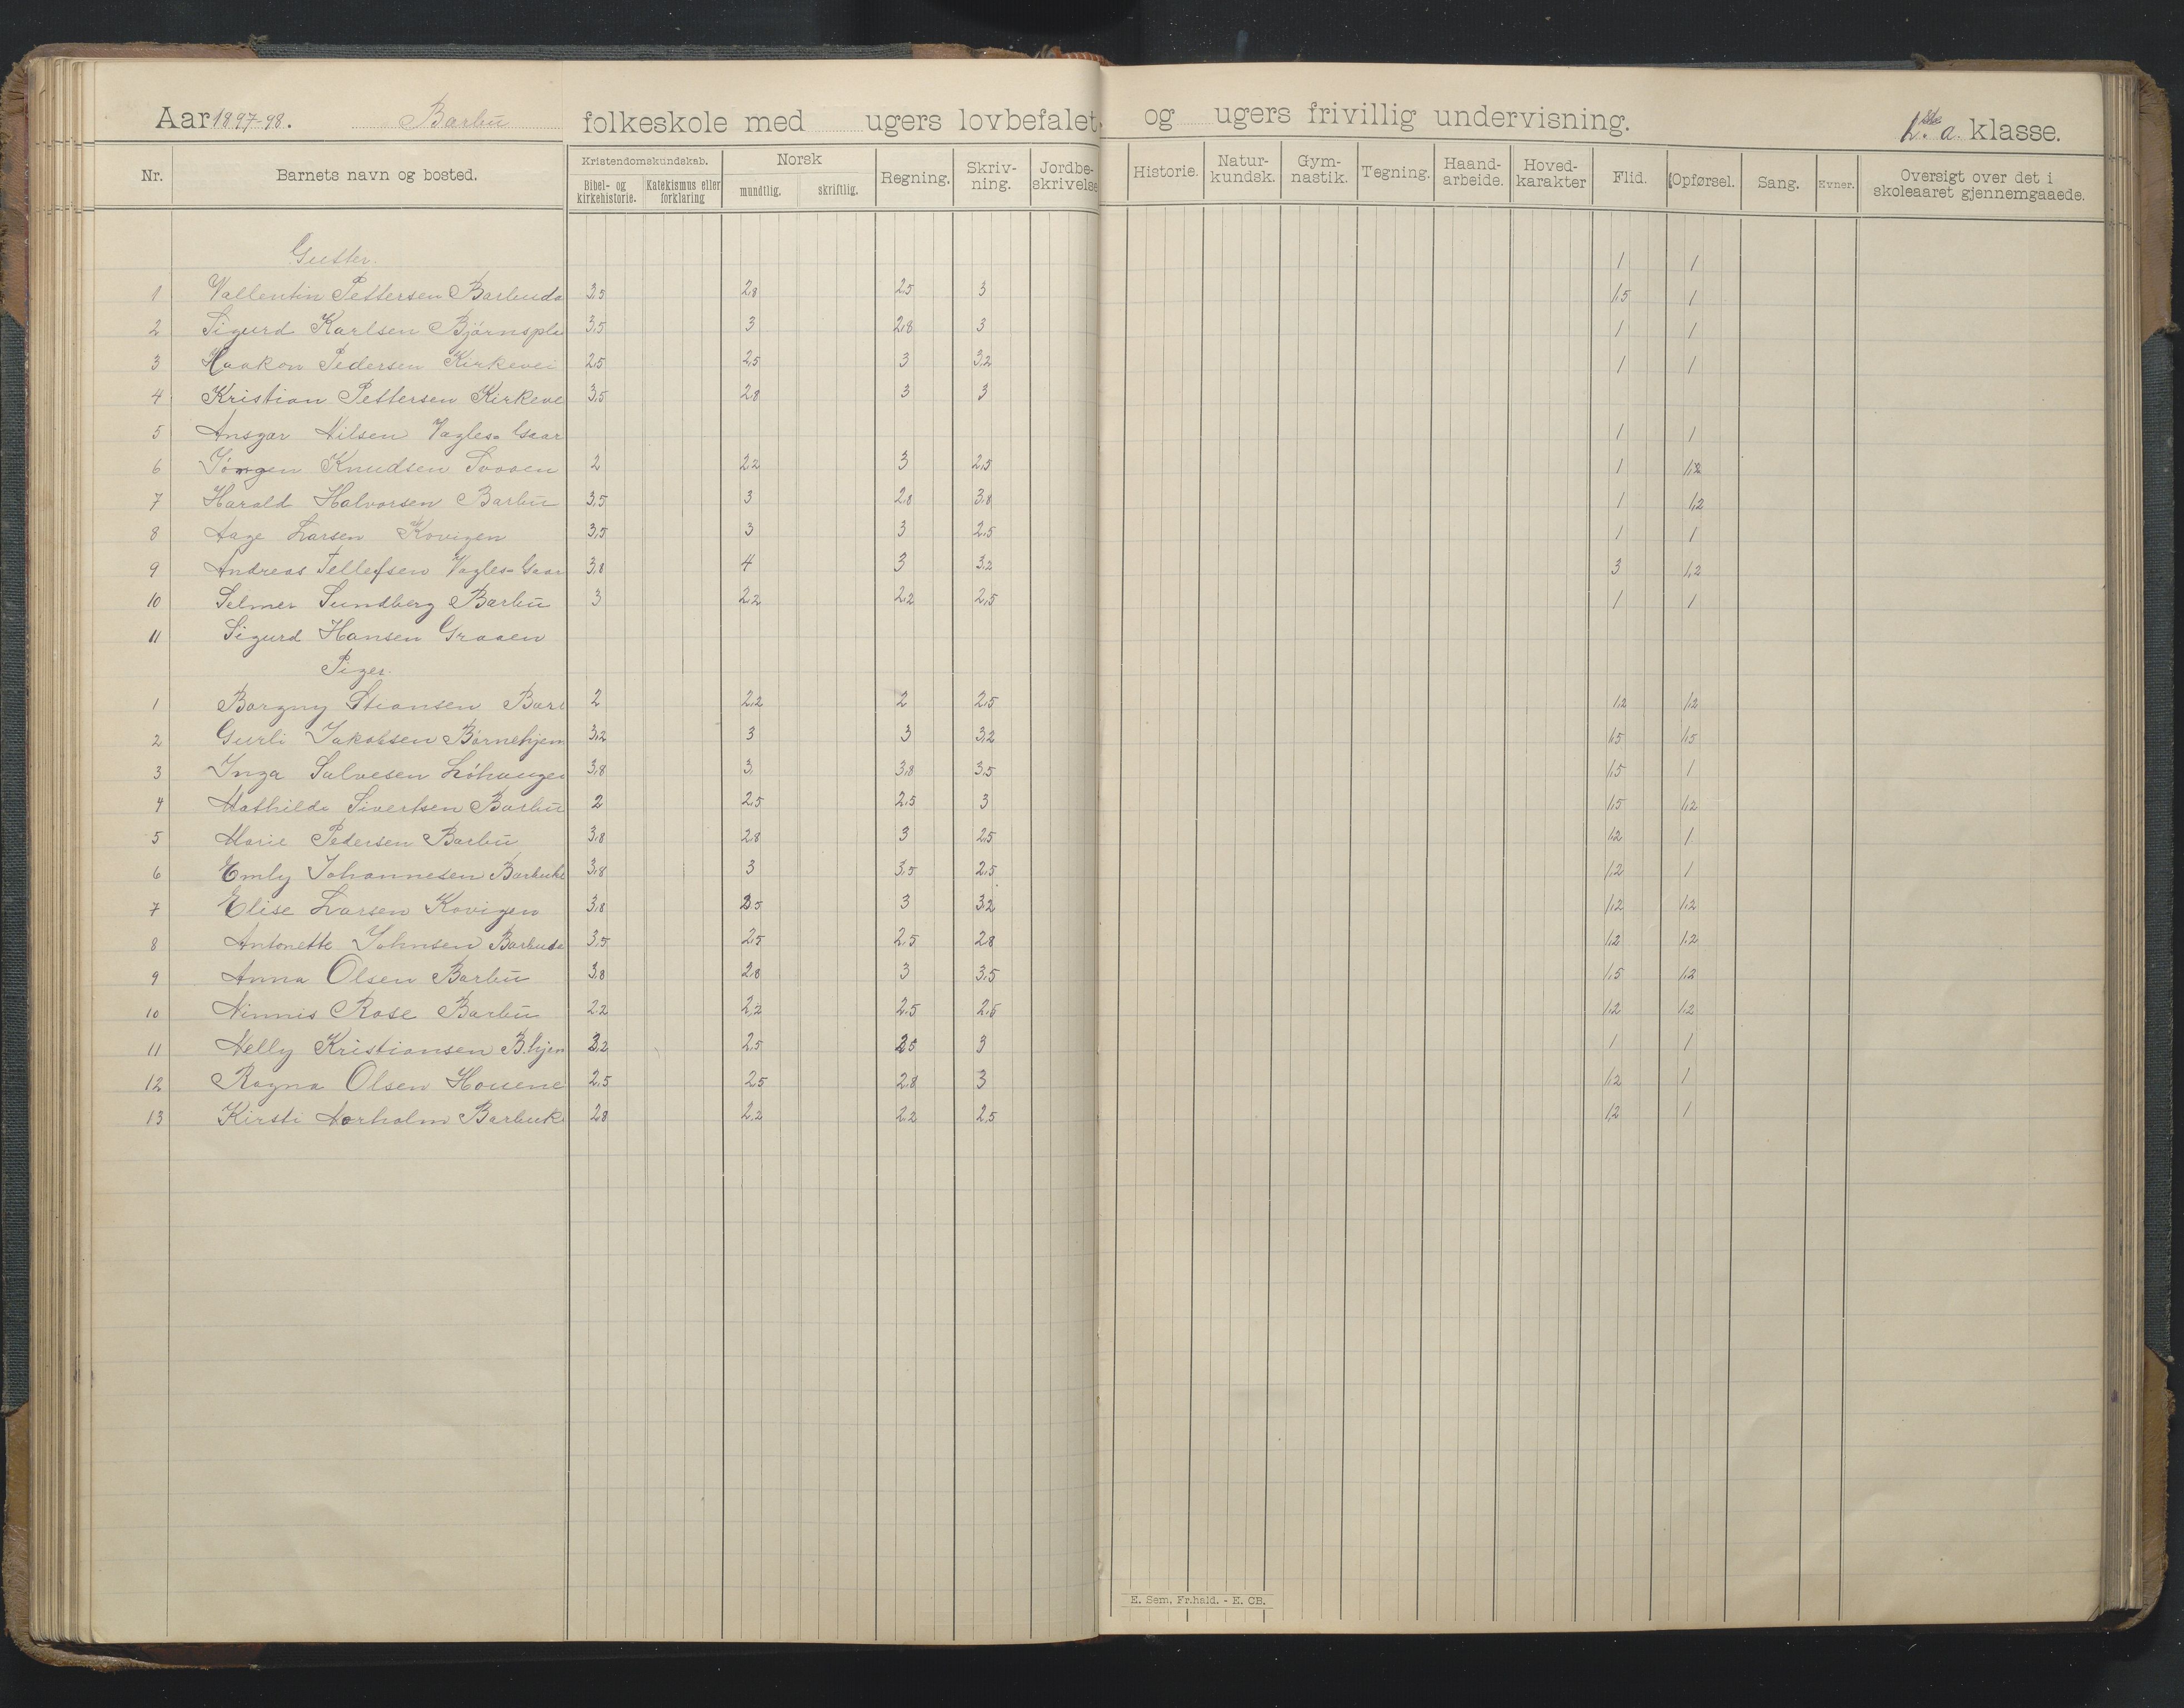 Aar 1897-98. Barbu folkeskole med ugers lovbefalet og ugers frivillig undervisning. a. klasse.
Nr. Barnets navn og bosted. Kristendomskundskab. Bibel- og kirkehistorie. Katekismus eller forklaring Norsk mundtlig. skriftlig. Regning. Skriv-ning. Jordbe-skrivelse Historie. Natur-kundsk. Gym-nastik. Tegning. Haand-arbeide. Hoved-karakter Flid. Opførsel. Sang. Evner. Oversigt over det i skoleaaret gjennemgaaede.
Gutter. 1 1
1 Vallentin Pettersen Barbuda 3,5 2,8 2,5 3 1,5 1
2 Sigurd Karlsen Bjørnspla 3,5 3 2,8 3 1 1
3 Haakon Pedersen Kirkevei 2,5 2,5 3 3,2 1 1
4 Kristian Pettersen Kirkeve 3,5 2,8 3 3
5 Ansgar Nilsen Vagles Gaar 1 1
6 Jörgen Knudsen 2 2,2 3 2,5 1 1,2
7 Harald Halvorsen Barbu 3,5 3 2,8 3,8 1 1,2
8 Aage Larsen Kovigen 3,5 3 3 2,5 1 1
9 Andreas Tellefsen Vagles Gaar 3,8 4 3 3,2 3 1,2
10 Selmer Sundberg Barbu 3 2,2 2,2 2,5 1 1
11 Sigurd Hansen Graaen
Piger.
1 Borgny Stiansen Barb 2 2,2 2 2,5 1,2 1,2
2 Gurli Jakobsen Børnehjem 3,2 3 3 3,2 1,5 1,5
3 Inga Salvesen Löhaugen 3,8 3 3,8 3,5 1,5 1
4 Mathilde Sivertsen Barbu 2 2,5 2,5 3 1,5 1,2
5 Marie Pedersen Barbu 3,8 2,8 3 2,5 1,2 1
6 Emly Johannesen Barbuki 3,8 3 3,5 2,5 1,2 1
7 Elise Larsen Kovigen 3,8 3,5 3 3,2 1,2 1,2
8 Antonette Johnsen Barbude 3,5 2,5 2,5 2,8 1,2 1,2
9 Anna Olsen Barbu 3,8 2,8 3 3,5 1,5 1,2
10 Ninnis Rose Barbu 2,2 2,2 2,5 2,5 1,2 1,2
11 Nelly Kristiansen B.hjem 3,2 2,5 2,5 3 1 1
12 Ragna Olsen Houene 2,5 2,5 2,8 3 1,2 1
13 Kirsti Norholm Barbuk 2,8 2,2 2,2 2,5 1,2 1
E. Sem, Fr.hald. - E. CB.